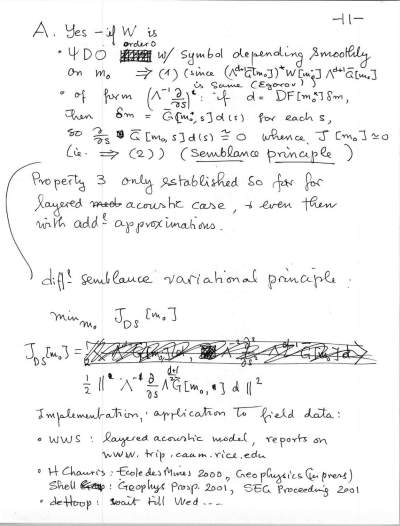 -11-
A. Yes - if W is
• ΨDO order 0 w/ symbol depending smoothly
on m₀ ⇒ (1) (since (Λᵈ⁺¹G̅[m₀])* W[m₀] Λᵈ⁺¹ G̅[m₀]
is same (Egorov))
• of form (Λ⁻¹ ∂/∂s)²: if d = DF[m₀]δm,
then δm = G̅[m₀,s]d(s) for each s,
so ∂/∂s G̅[m₀,s]d(s) ≅ 0 whence J[m₀] ≃ 0
(ie. ⇒ (2)) (semblance principle)
Property 3 only established so far for
layered acoustic case, & even then
with addˡ approximations.
diffˡ semblance variational principle:
min m₀ J_DS[m₀]
J_DS[m₀] =
½ ‖ Λ⁻¹ ∂/∂s Λ G̅[m₀, •] d ‖²
Implementation, application to field data:
• WWS: layered acoustic model, reports on
www.trip.caam.rice.edu
• H Chauris: Ecole des Mines 2000, Geophysics (in press)
Shell : Geophys Prosp. 2001, SEG Proceeding 2001
• deHoop: wait till Wed...